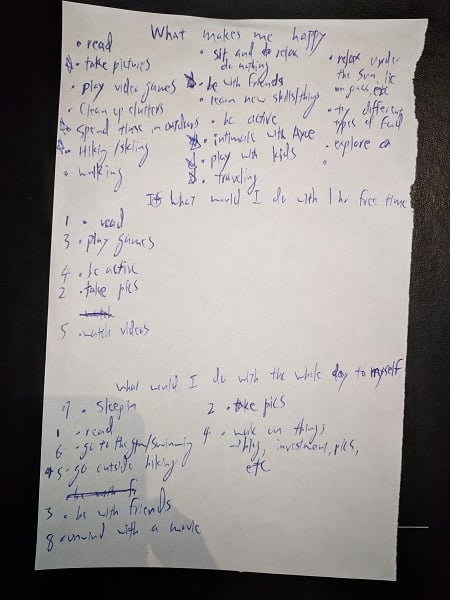 What makes me happy
• read
☆ take pictures
• play video games
• Clean up clutters
☆ Spend time in outdoors
☆ Hiking/skiing
• walking
• sit and relax
do nothing
☆ be with friends
• learn new skills/things
• be active
☆ intimate with
☆ play with kids
☆ traveling
• relax under
the sun, lie
on grass, etc
• try different
types of food
• explore
•
If what would I do with 1 hr free time
1 • read
3 • play games
4 • be active
2 • take pics
5 • watch videos
what would I do with the whole day to myself
7 • sleep in
1 • read
6 • go to the gym/swimming
5 • go outside hiking
3 • be with friends
8 • unwind with a movie
2 • take pics
4 • work on things
→ blog, investment, pics,
etc.